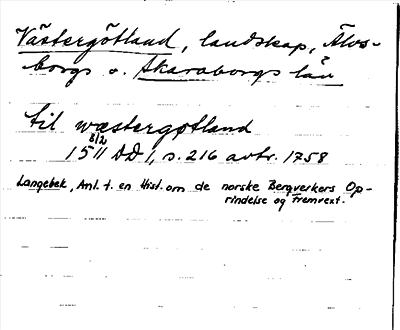 Västergötland, landskap, Älvs-
borgs o. Skaraborgs län
til wæstergøtland
8/2
1511 DD 1, s. 216 avtr. 1758
Langebek, Anl. t. en Hist. om de norske Bergverkers Op-
rindelse og Fremvext.